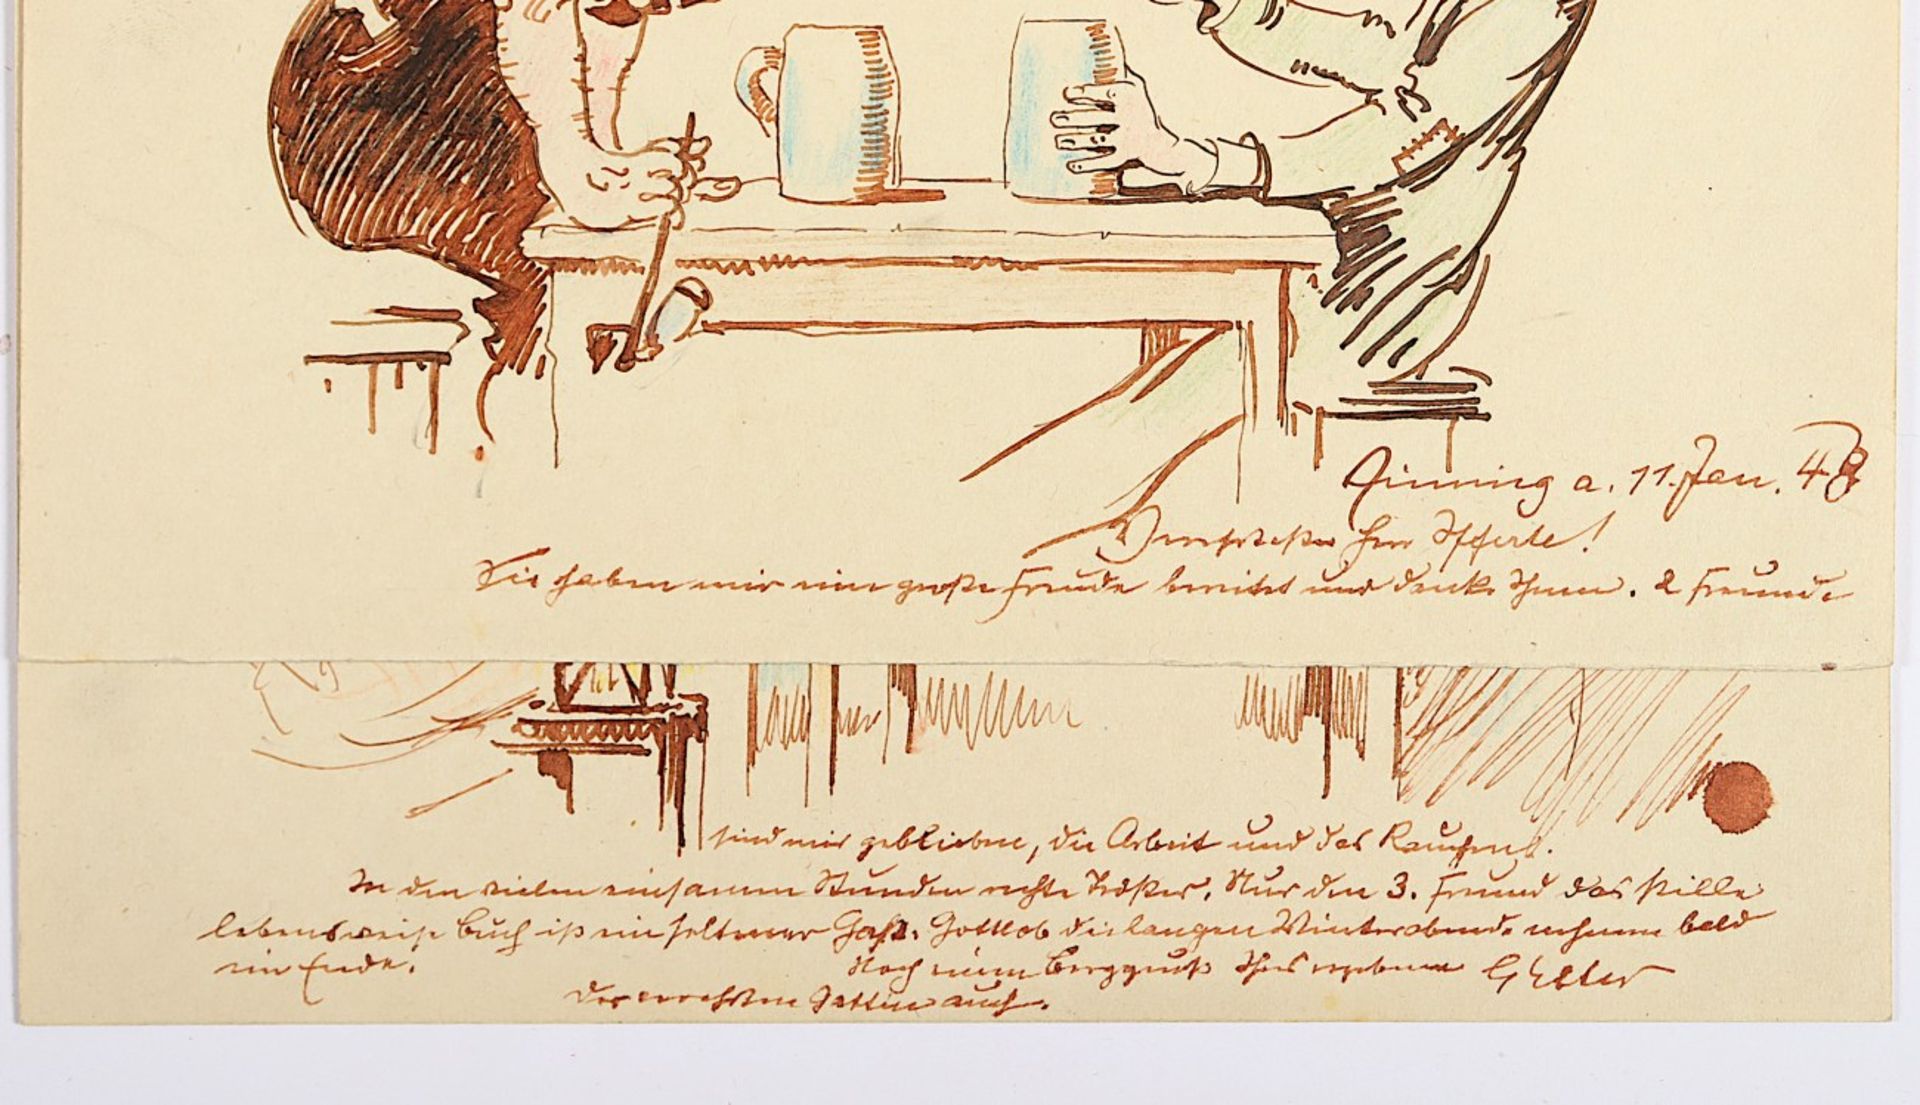 Zinning a. 11. Jan. 48
Verehrtester Herr Pfferle!
Sie haben mir eine große Freude bereitet und danke Ihnen. 2 Freunde
sind mir geblieben, die Arbeit und das Rauchen.
In den vielen einsamen Stunden rechte Tröster. Nur den 3. Freund das stille
lebensweise Buch ist ein seltener Gast. Gottlob die langen Winterabende nehmen bald
ein Ende.
Noch einen Berggruß Ihres ergebenen
Der verehrten Gattin auch.